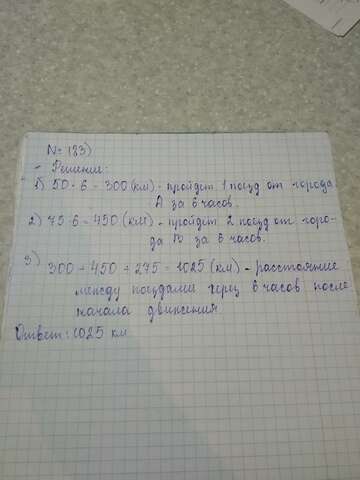 № 183)
- Решение:
1) 50 · 6 = 300 (км) - пройдет 1 поезд от города
А за 6 часов.
2) 75 · 6 = 450 (км) - пройдет 2 поезд от горо-
да В за 6 часов.
3)
300 + 450 + 275 = 1025 (км) - расстояние
между поездами через 6 часов после
начала движения
Ответ: 1025 км